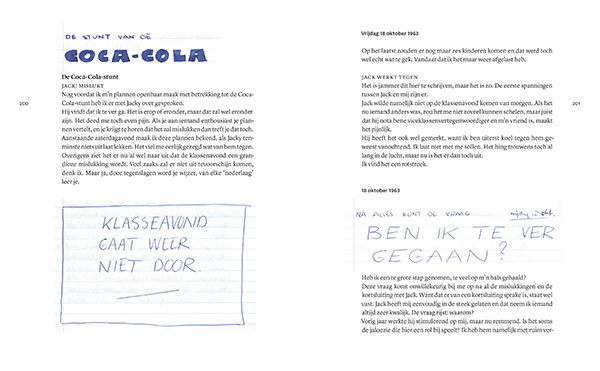 DE STUNT VAN DE
COCA-COLA
De Coca-Cola-stunt
JACK: MISLUKT
Nog voordat ik m'n plannen openbaar maak met betrekking tot de Coca-
Cola-stunt heb ik er met Jacky over gesproken.
Hij vindt dat ik te ver ga. Het is erop of eronder, maar dat zal wel eronder
zijn. Het deed me toch even pijn. Als je aan iemand enthousiast je plan-
nen vertelt, en je krijgt te horen dat het zal mislukken dan treft je dat toch.
Aanstaande zaterdagavond maak ik deze plannen bekend, als Jacky ten-
minste niets uit laat lekken. Het viel me eerlijk geregd wat van hem tegen.
Overigens ziet het er nu al wel naar uit dat de klasseavond een gran-
dioze mislukking wordt. Veel zaaks zal er niet uit tevoorschijn komen,
denk ik. Maar ja, door tegenslagen word je wijzer, van elke 'nederlaag'
leer je.
200
KLASSEAVOND
GAAT WEER
NIET DOOR.
Vrijdag 18 oktober 1963
Op het laatst zouden er nog maar zes kinderen komen en dat werd toch
wel echt wat te gek. Vandaar dat ik het maar weer afgelast heb.
JACK WERKT TEGEN
Het is jammer dit hier te schrijven, maar het is zo. De eerste spanningen
tussen Jack en mij zijn er.
Jack wilde namelijk niet op de klassenavond komen van morgen. Als het
nu iemand anders was, zou het me niet zoveel kunnen schelen, maar juist
dat hij nota bene viceklassenvertegenwoordiger en m'n vriend is, maakt
het pijnlijk.
Hij heeft het ook wel gemerkt, want ik ben uiterst koel tegen hem ge-
weest vanochtend. Ik laat niet met me sollen. Het hing trouwens toch al
lang in de lucht, maar nu is het er dan toch uit.
Ik vind het een rotstreek.
201
18 oktober 1963
NA ALLES KOMT DE VRAAG vrijdag 18 okt.
BEN IK TE VER
GEGAAN?
Heb ik een te grote stap genomen, te veel op m'n hals gehaald?
Deze vraag komt onwillekeurig bij me op na al de mislukkingen en de
kortsluiting met Jack. Want dat er van een kortsluiting sprake is, staat wel
vast. Jack heeft mij eenvoudig in de steek gelaten en dat neem ik iemand
altijd zeer kwalijk. De vraag rijst: waarom?
Vorig jaar werkte hij stimulerend op mij, maar nu remmend. Is het soms
de jaloezie die hier een rol bij speelt? Ik heb hem namelijk met ruim ver-